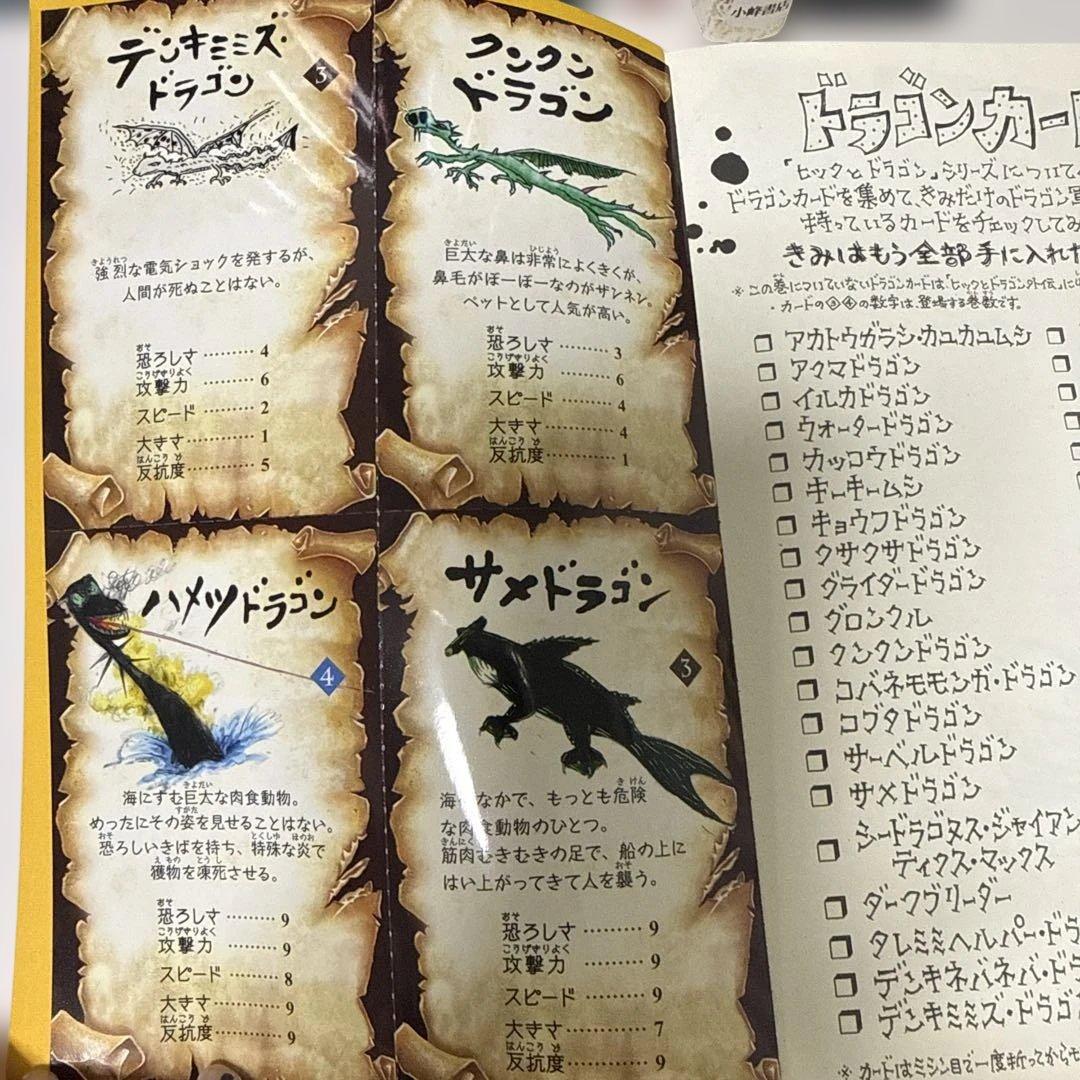 デンキミミズ・
ドラゴン
3
強烈な電気ショックを発するが、
人間が死ぬことはない。
恐ろしさ………4
攻撃力………6
スピード………2
大きさ………1
反抗度………5
クンクン
ドラゴン
巨大な鼻は非常によくきくが、
鼻毛がぼーぼーなのがザンネン。
ペットとして人気が高い。
恐ろしさ………3
攻撃力………6
スピード………4
大きさ………4
反抗度………1
ハメツドラゴン
4
海にすむ巨大な肉食動物。
めったにその姿を見せることはない。
恐ろしいきばを持ち、特殊な炎で
獲物を凍死させる。
恐ろしさ………9
攻撃力………9
スピード………8
大きさ………9
反抗度………9
サメドラゴン
3
なかで、もっとも危険
な肉食動物のひとつ。
筋肉むきむきの足で、船の上に
はい上がってきて人を襲う。
恐ろしさ………9
攻撃力………9
スピード………9
大きさ………7
反抗度………9
ドラゴンカー
「ヒックとドラゴン」シリーズについて
ドラゴンカードを集めて、きみだけのドラゴン
持っているカードをチェックしてみ
きみはもう全部手に入れた
※この巻についていないドラゴンカードは、「ヒックとドラゴン外伝」に
・カードの③④の数字は、登場する巻数です。
□ アカトウガラシ・カユカユムシ
□ アクマドラゴン
□ イルカドラゴン
□ ウォータードラゴン
□ カッコウドラゴン
□ キーキームシ
□ キョウフドラゴン
□ クサクサドラゴン
□ グライダードラゴン
□ グロンクル
□ クンクンドラゴン
□ コバネモモンガ・ドラゴン
□ コブタドラゴン
□ サーベルドラゴン
□ サメドラゴン
□ シードラゴヌス・ジャイアン
ティクス・マックス
□ ダークブリーダー
□ タレミミヘルパー・ドラ
□ デンキネバネバ・ドラ
□ デンキミミズ・ドラゴ
※カードはミシン目で一度折ってからモ